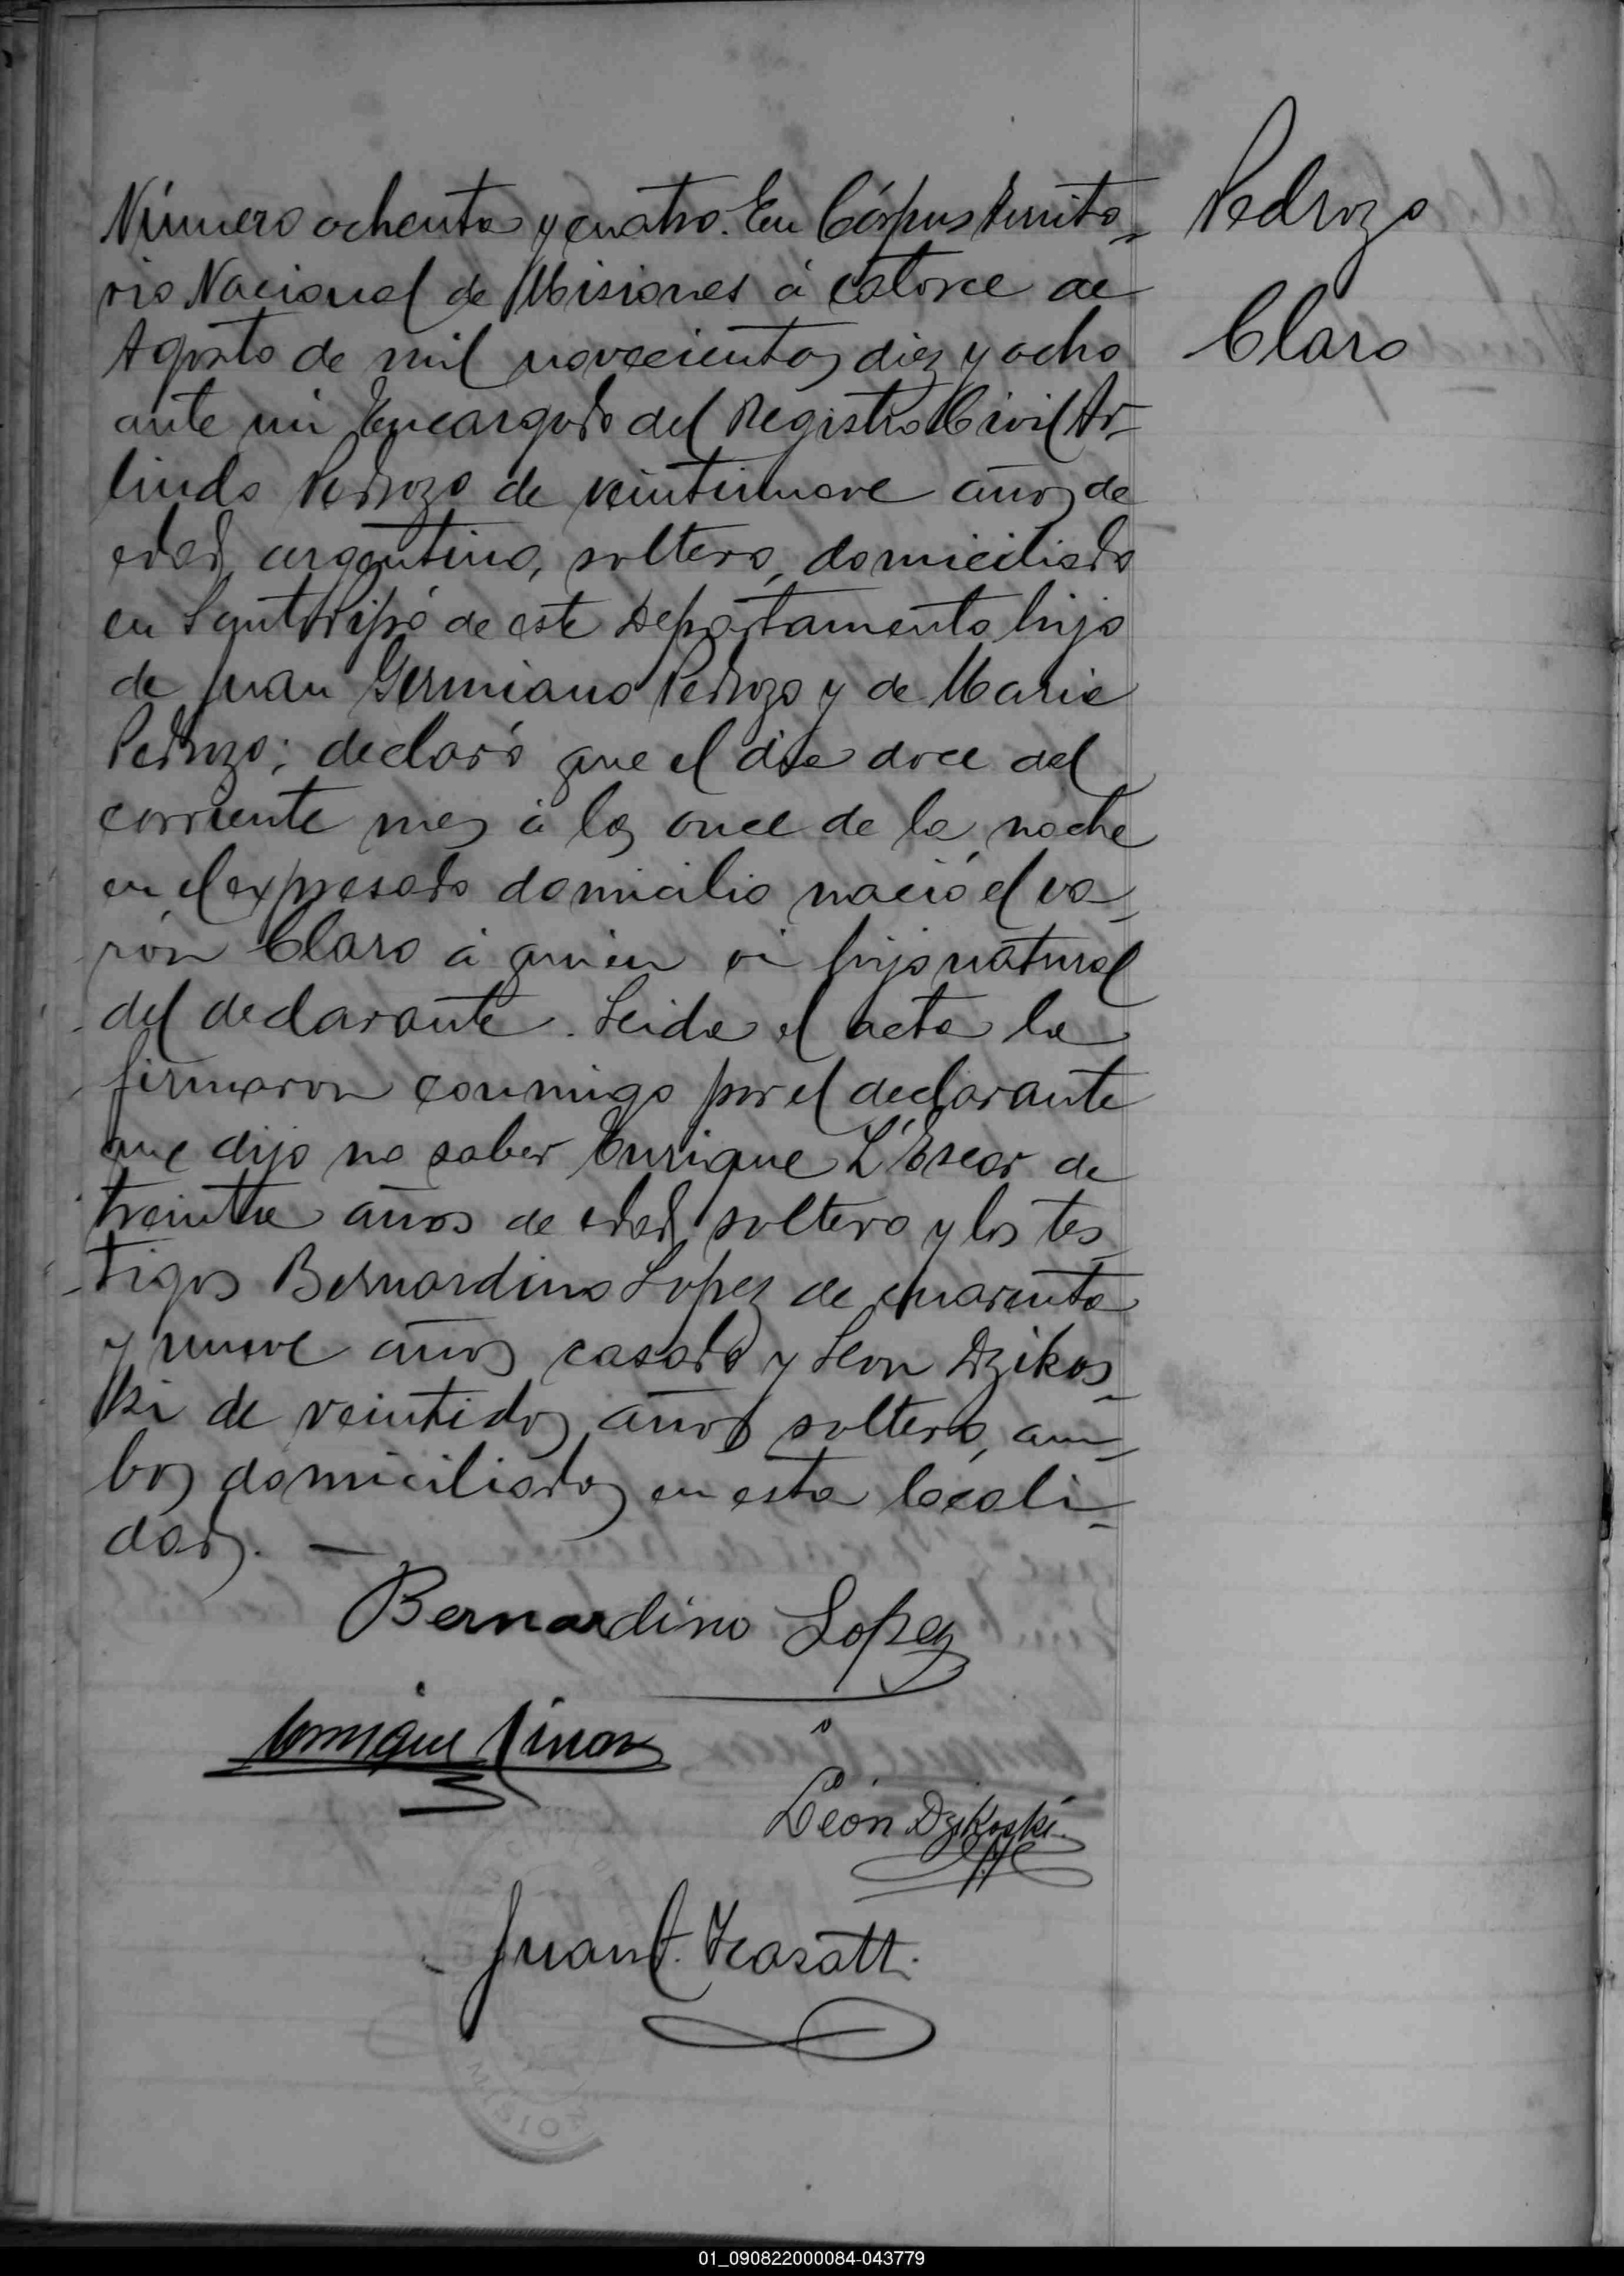 Pedrozo
Claro
Número ochenta y cuatro. En Córpus Territo-
rio Nacional de Misiones á catorce de
Agosto de mil novecientos diez y ocho
ante mi Encargado del Registro Civil Ar-
lindo Pedrozo de veintinueve años de
edad, argentino, soltero, domiciliado
en Santo Pipó de este Departamento, hijo
de Juan Germiano Pedrozo y de Maria
Pedrozo; declaró que el dia doce del
corriente mes á las once de la noche
en el expresado domicilio nació el va-
rón Claro á quien vi hijo natural
del declarante. Leida el acta la
firmaron conmigo por el declarante
que dijo no saber Enrique de
treinta años de edad, soltero y los tes-
tigos Bernardino Lopez de cuarenta
y nueve años casado y Leon Dzikos-
ki de veintidos años soltero, am-
bos domiciliados en esta locali-
dad. —
Bernardino Lopez
Enrique
León Dzikoski
Juan
MISION
01_090822000084-043779